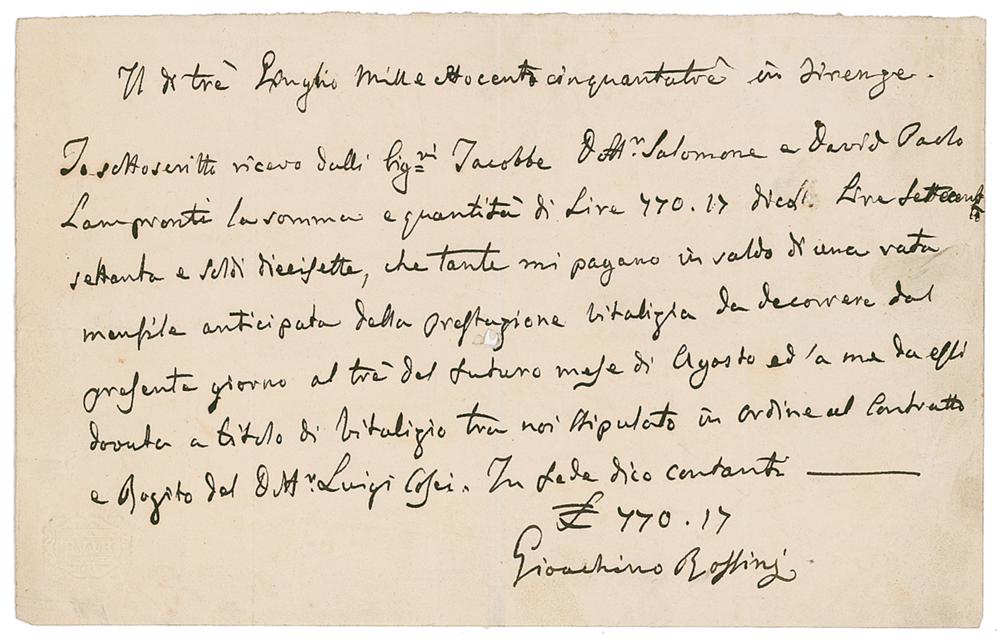 Il di trè Luglio Mille ottocento cinquantatrè in Firenze.
Io sottoscritto ricevo dalli Sig.ri Jacobbe Dott.r Salomone e David Paolo
Lampronti la somma e quantità di Lire 770.17 dico Lire settecento
settanta e soldi diecisette, che tante mi pagano in saldo di una rata
mensile anticipata della prestazione Vitalizia da decorrere dal
presente giorno al trè del futuro mese di Agosto ed a me da essi
dovuta a titolo di Vitalizio tra noi stipulato in ordine al Contratto
e Rogito del Dott.r Luigi . In fede dico contanti
£ 770.17
Gioachino Rossini